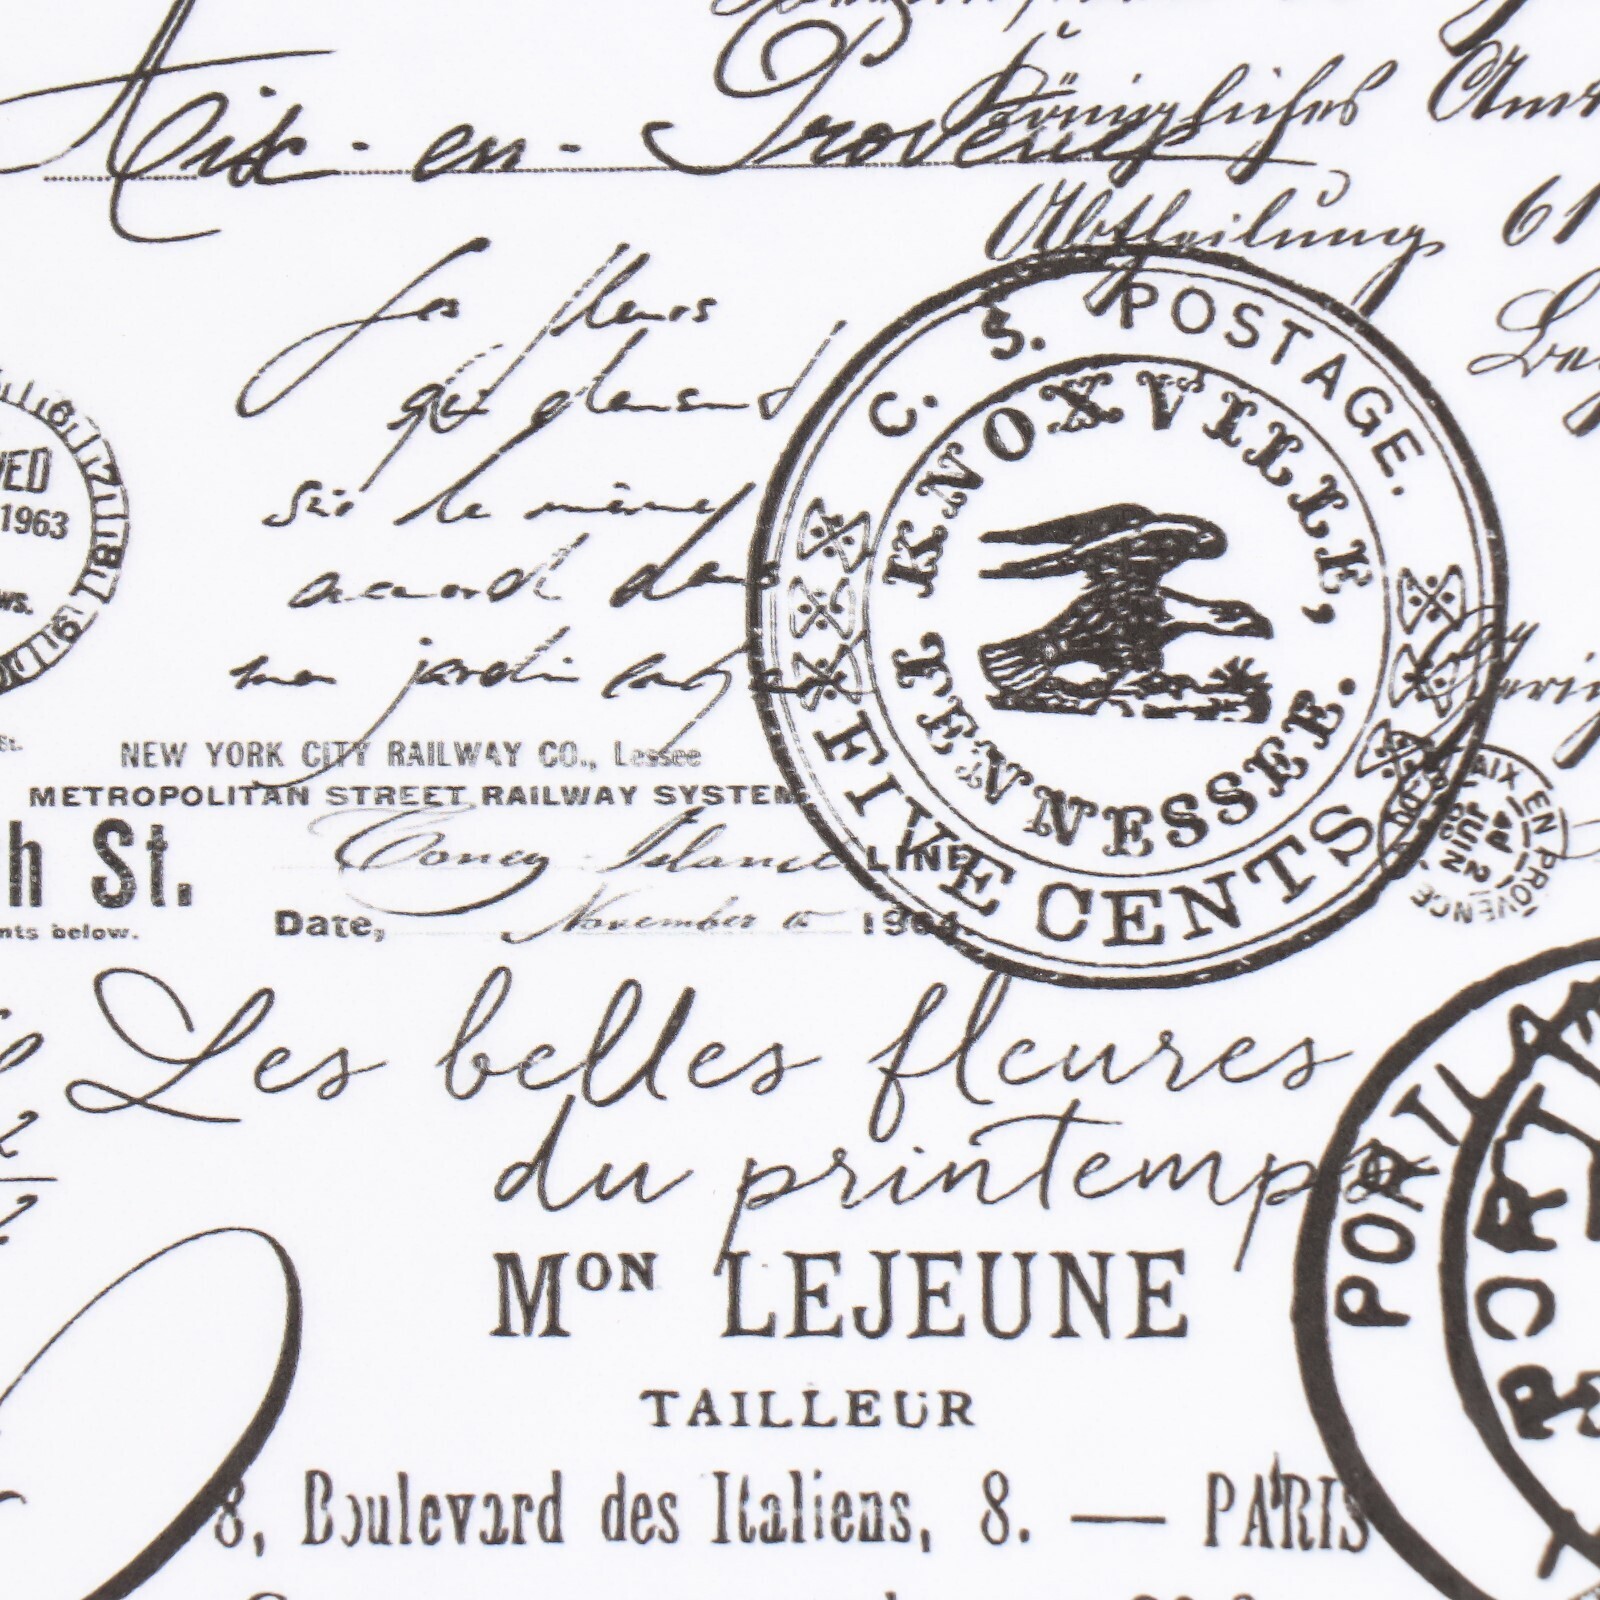 Aix-en-Provence
Königliches Ams
Abtheilung 61
Les fleurs
qui dansent
sur le même
accord dans
mon jardin
C. S. POSTAGE.
KNOXVILLE,
TENNESSEE.
FIVE CENTS
VED
1963
NEW YORK CITY RAILWAY CO., Lessee
METROPOLITAN STREET RAILWAY SYSTEM
h St.
Coney Island LINE
nts below.
Date, November 15 1904
AIX EN PROVENCE
JUIN
Les belles fleures
du printemps
MON LEJEUNE
TAILLEUR
8, Boulevard des Italiens, 8. — PARIS
PORTL
PORT